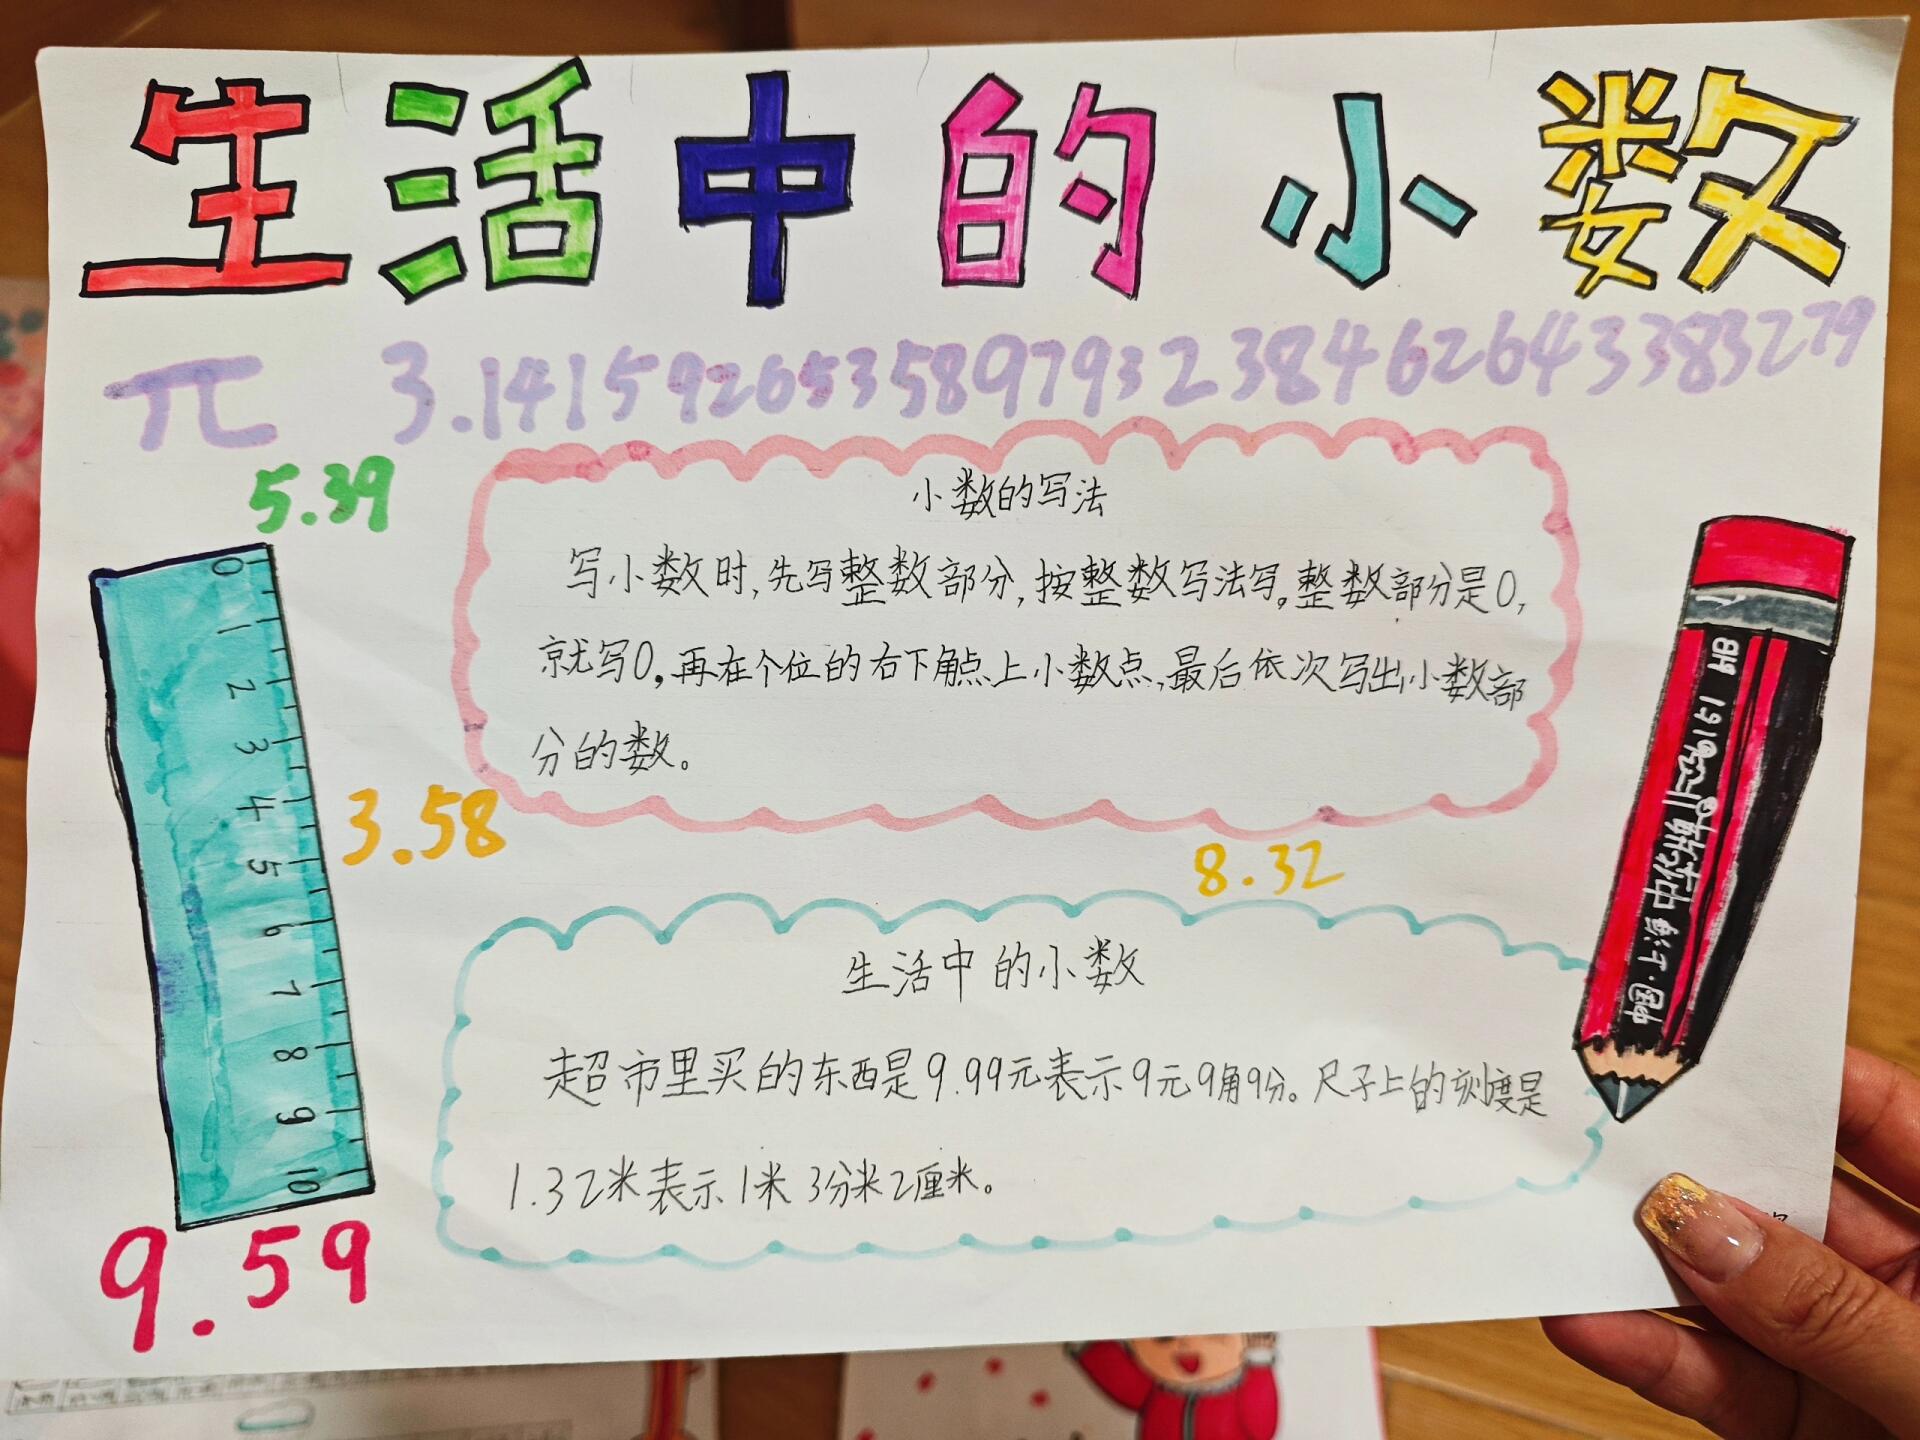 生活中的小数
π 3.1415926535897932384626433383279
5.39
小数的写法
写小数时,先写整数部分,按整数写法写。整数部分是0,
就写0,再在个位的右下角点上小数点,最后依次写出小数部
分的数。
0
1
2
3
4
5
6
7
8
9
10
3.58
8.32
生活中的小数
超市里买的东西是9.99元表示9元9角9分。尺子上的刻度是
1.32米表示1米3分米2厘米。
9.59
中国·上海